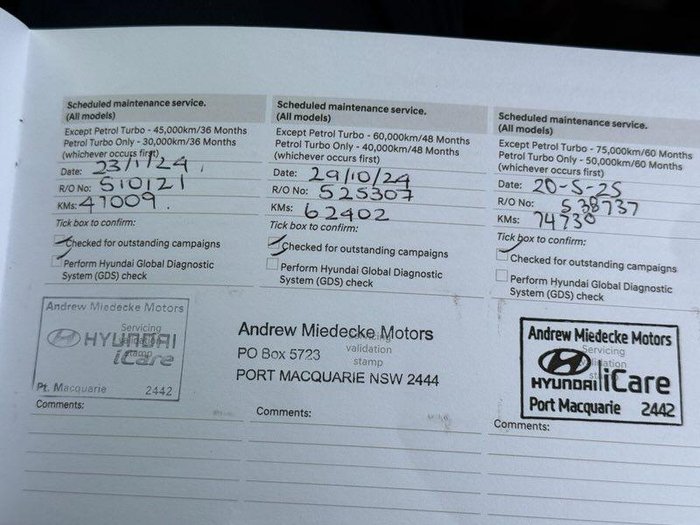 Scheduled maintenance service.
(All models)
Except Petrol Turbo - 45,000km/36 Months
Petrol Turbo Only - 30,000km/36 Months
(whichever occurs first)
Date: 23/1/24
R/O No: 510121
KMs: 47009.
Tick box to confirm:
Checked for outstanding campaigns
Perform Hyundai Global Diagnostic
System (GDS) check
Andrew Miedecke Motors
HYUNDAI
iCare
Servicing
stamp
Pt. Macquarie 2442
Comments:
Scheduled maintenance service.
(All models)
Except Petrol Turbo - 60,000km/48 Months
Petrol Turbo Only - 40,000km/48 Months
(whichever occurs first)
Date: 29/10/24
R/O No: 525307
KMs: 62402
Tick box to confirm:
Checked for outstanding campaigns
Perform Hyundai Global Diagnostic
System (GDS) check
Andrew Miedecke Motors
PO Box 5723
validation
stamp
PORT MACQUARIE NSW 2444
Comments:
Scheduled maintenance service.
(All models)
Except Petrol Turbo - 75,000km/60 Months
Petrol Turbo Only - 50,000km/60 Months
(whichever occurs first)
Date: 20-5-25
R/O No: 538737
KMs: 74730
Tick box to confirm:
Checked for outstanding campaigns
Perform Hyundai Global Diagnostic
System (GDS) check
Andrew Miedecke Motors
Servicing
HYUNDAI iCare
Port Macquarie 2442
Comments: